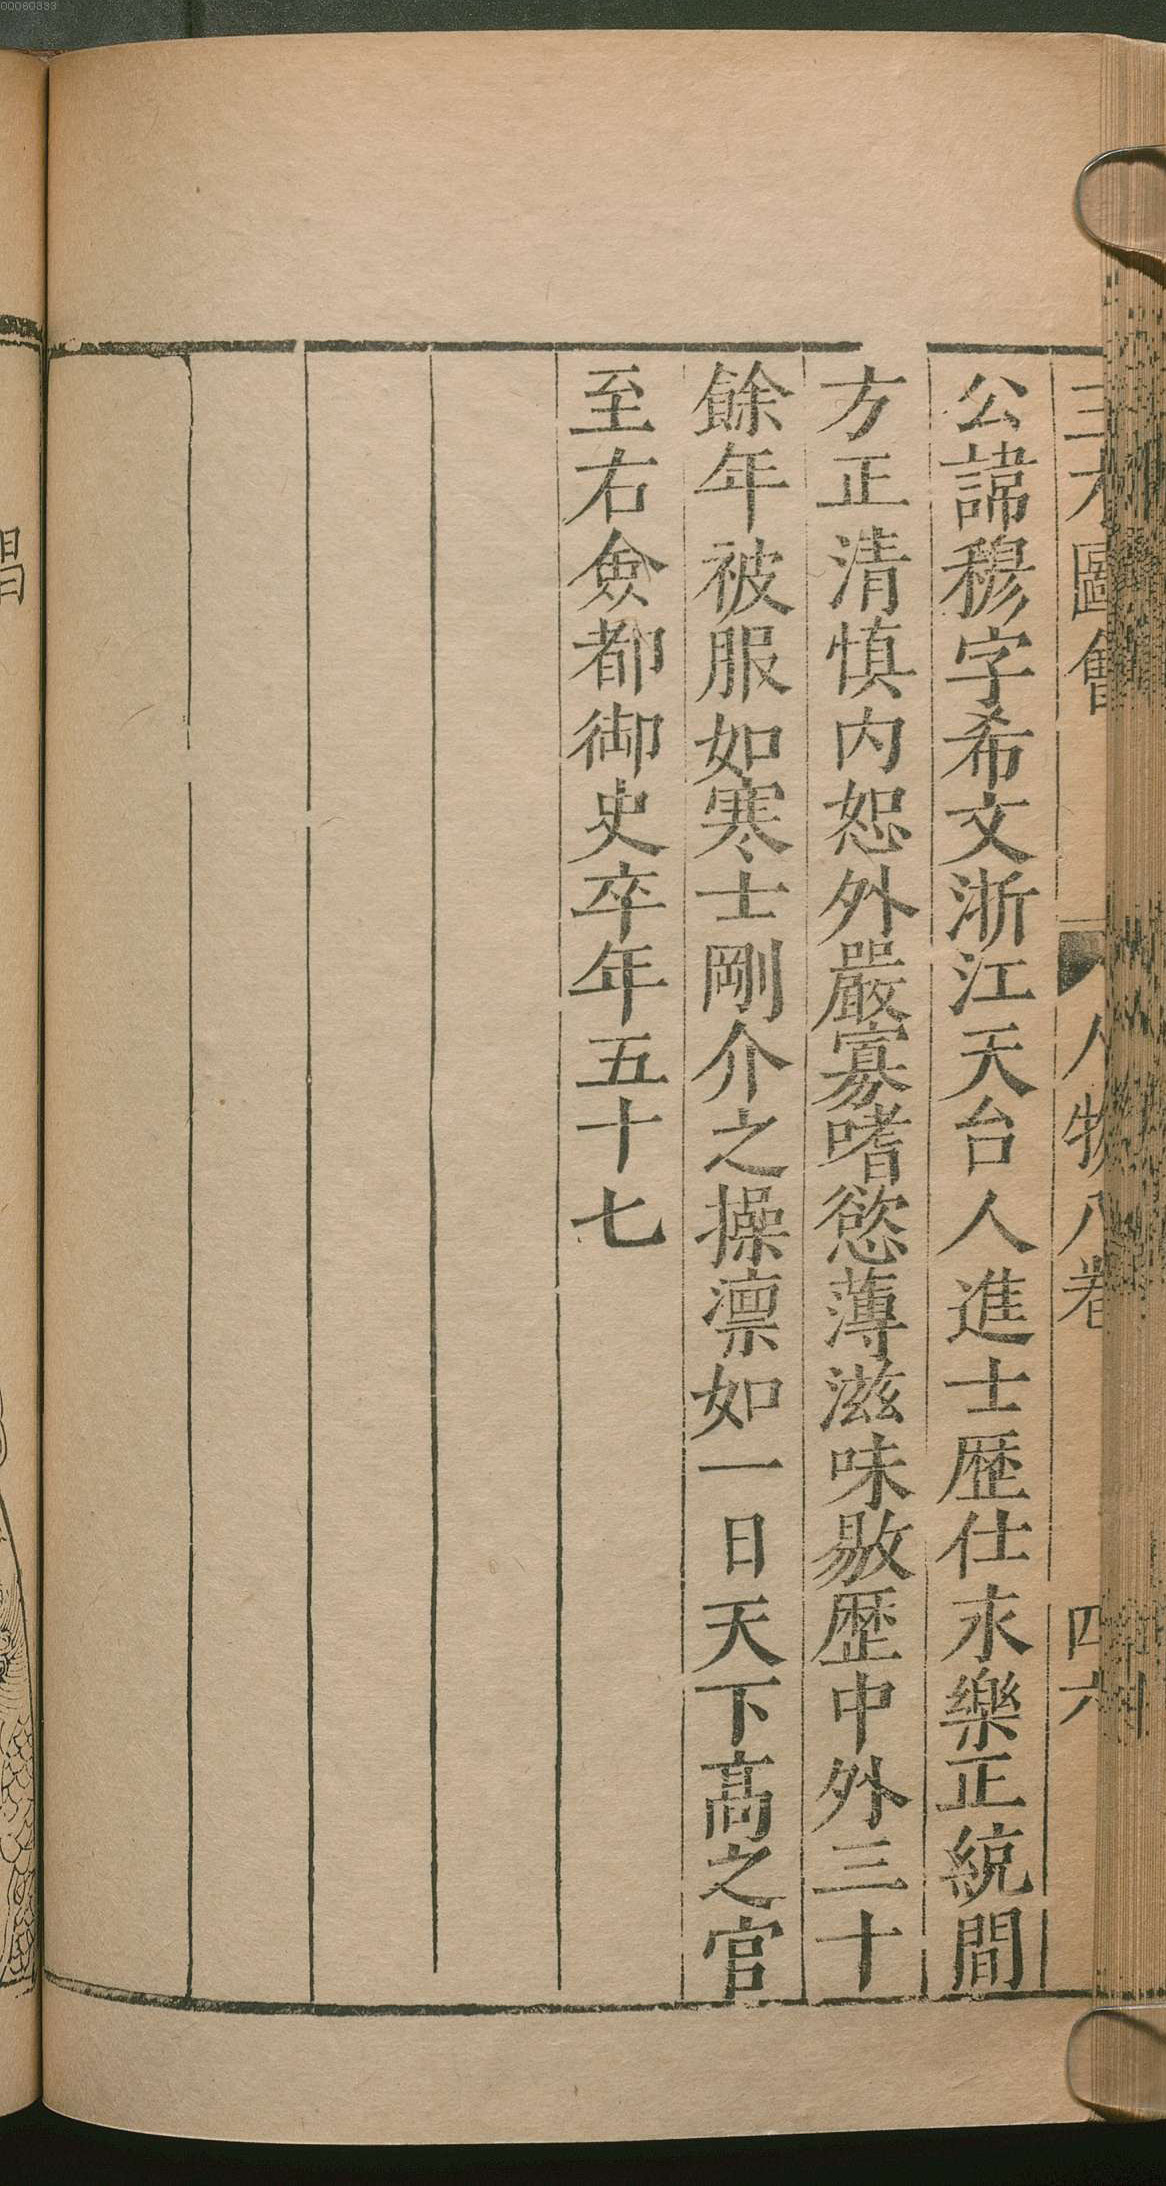 00060333
三才圖會 人物八卷 四六
公諱穆字希文浙江天台人進士歷仕永樂正統間
方正清慎內恕外嚴寡嗜慾薄滋味敭歷中外三十
餘年被服如寒士剛介之操凛如一日天下髙之官
至右僉都御史卒年五十七